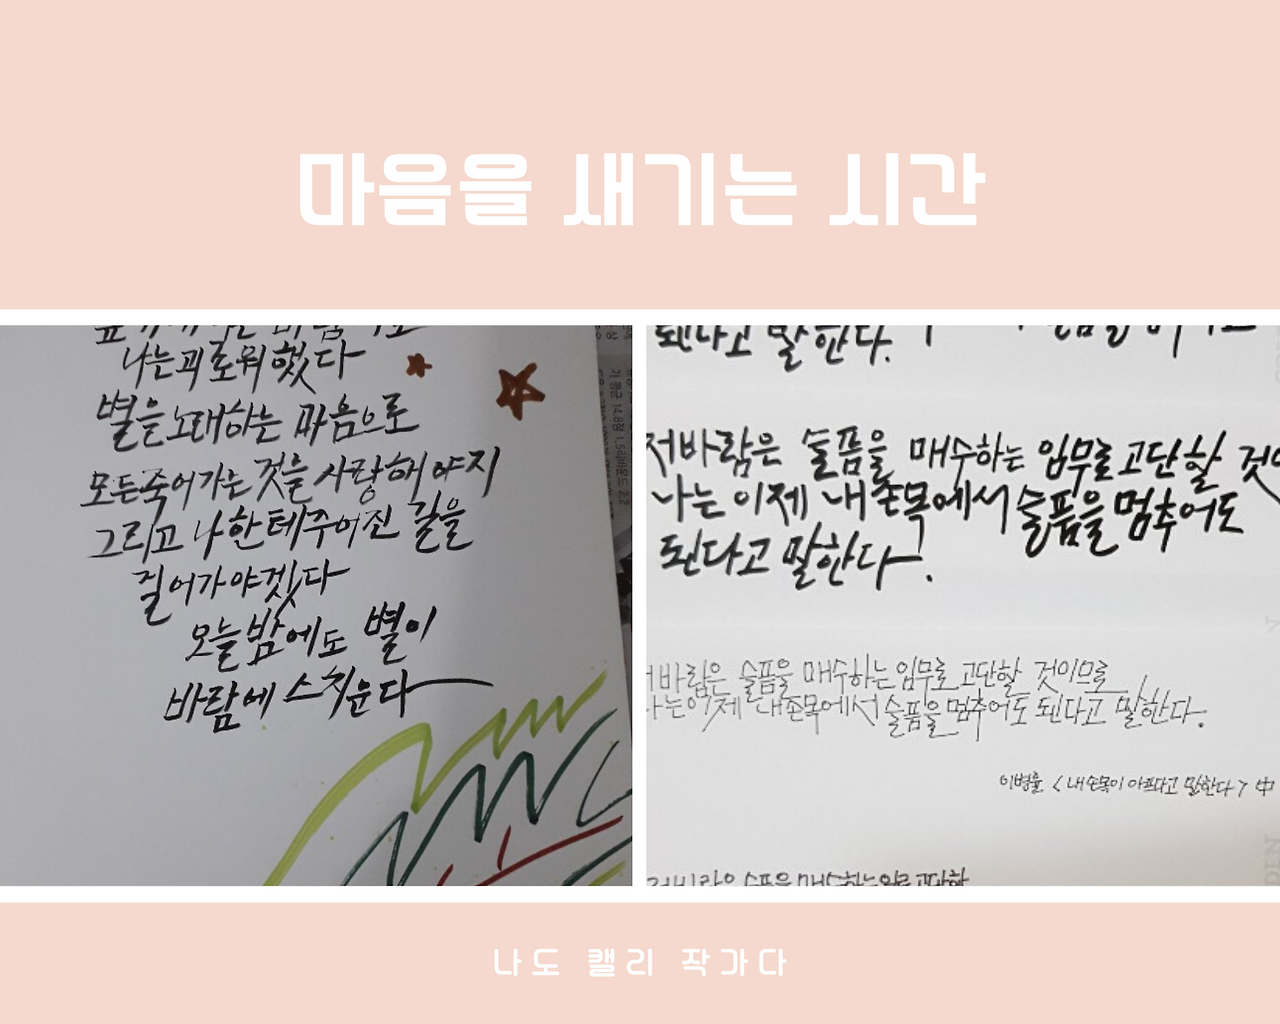 마음을 새기는 시간
나는 괴로워했다
별을 노래하는 마음으로
모든 죽어가는 것을 사랑해야지
그리고 나한테 주어진 길을
걸어가야겠다
오늘밤에도 별이
바람에 스치운다
된다고 말한다.
저 바람은 슬픔을 매수하는 임무로 고단할
나는 이제 내 손목에서 슬픔을 멈추어도
된다고 말한다.
바람은 슬픔을 매수하는 임무로 고단할 것이므로
나는 이제 내 손목에서 슬픔을 멈추어도 된다고 말한다.
이병률 <내 손목이 아프다고 말한다> 中
나도 캘리 작가다